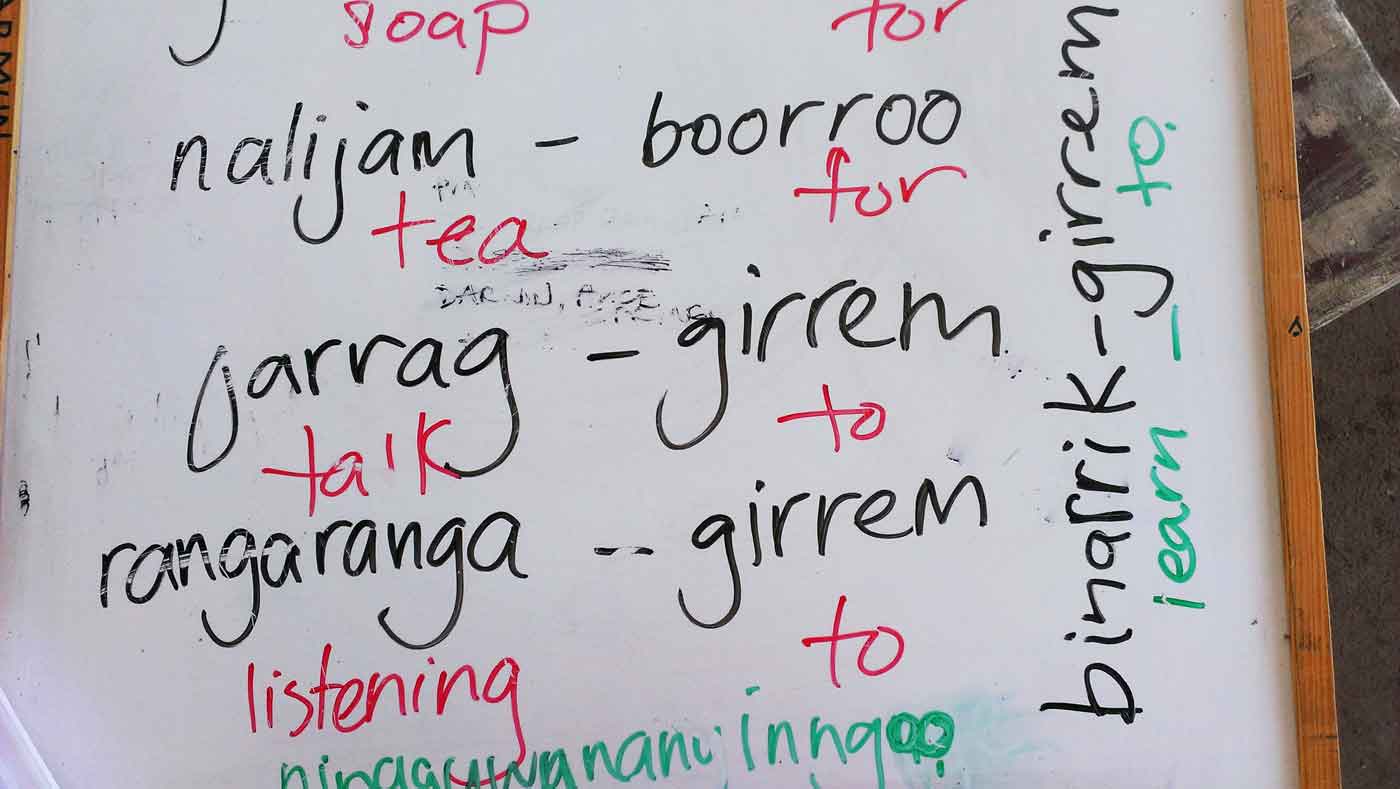 soap for
nalijam - boorroo
tea for
jarrag - girrem
talk to
rangaranga -- girrem
listening to
binarrik-girrem
learn - to